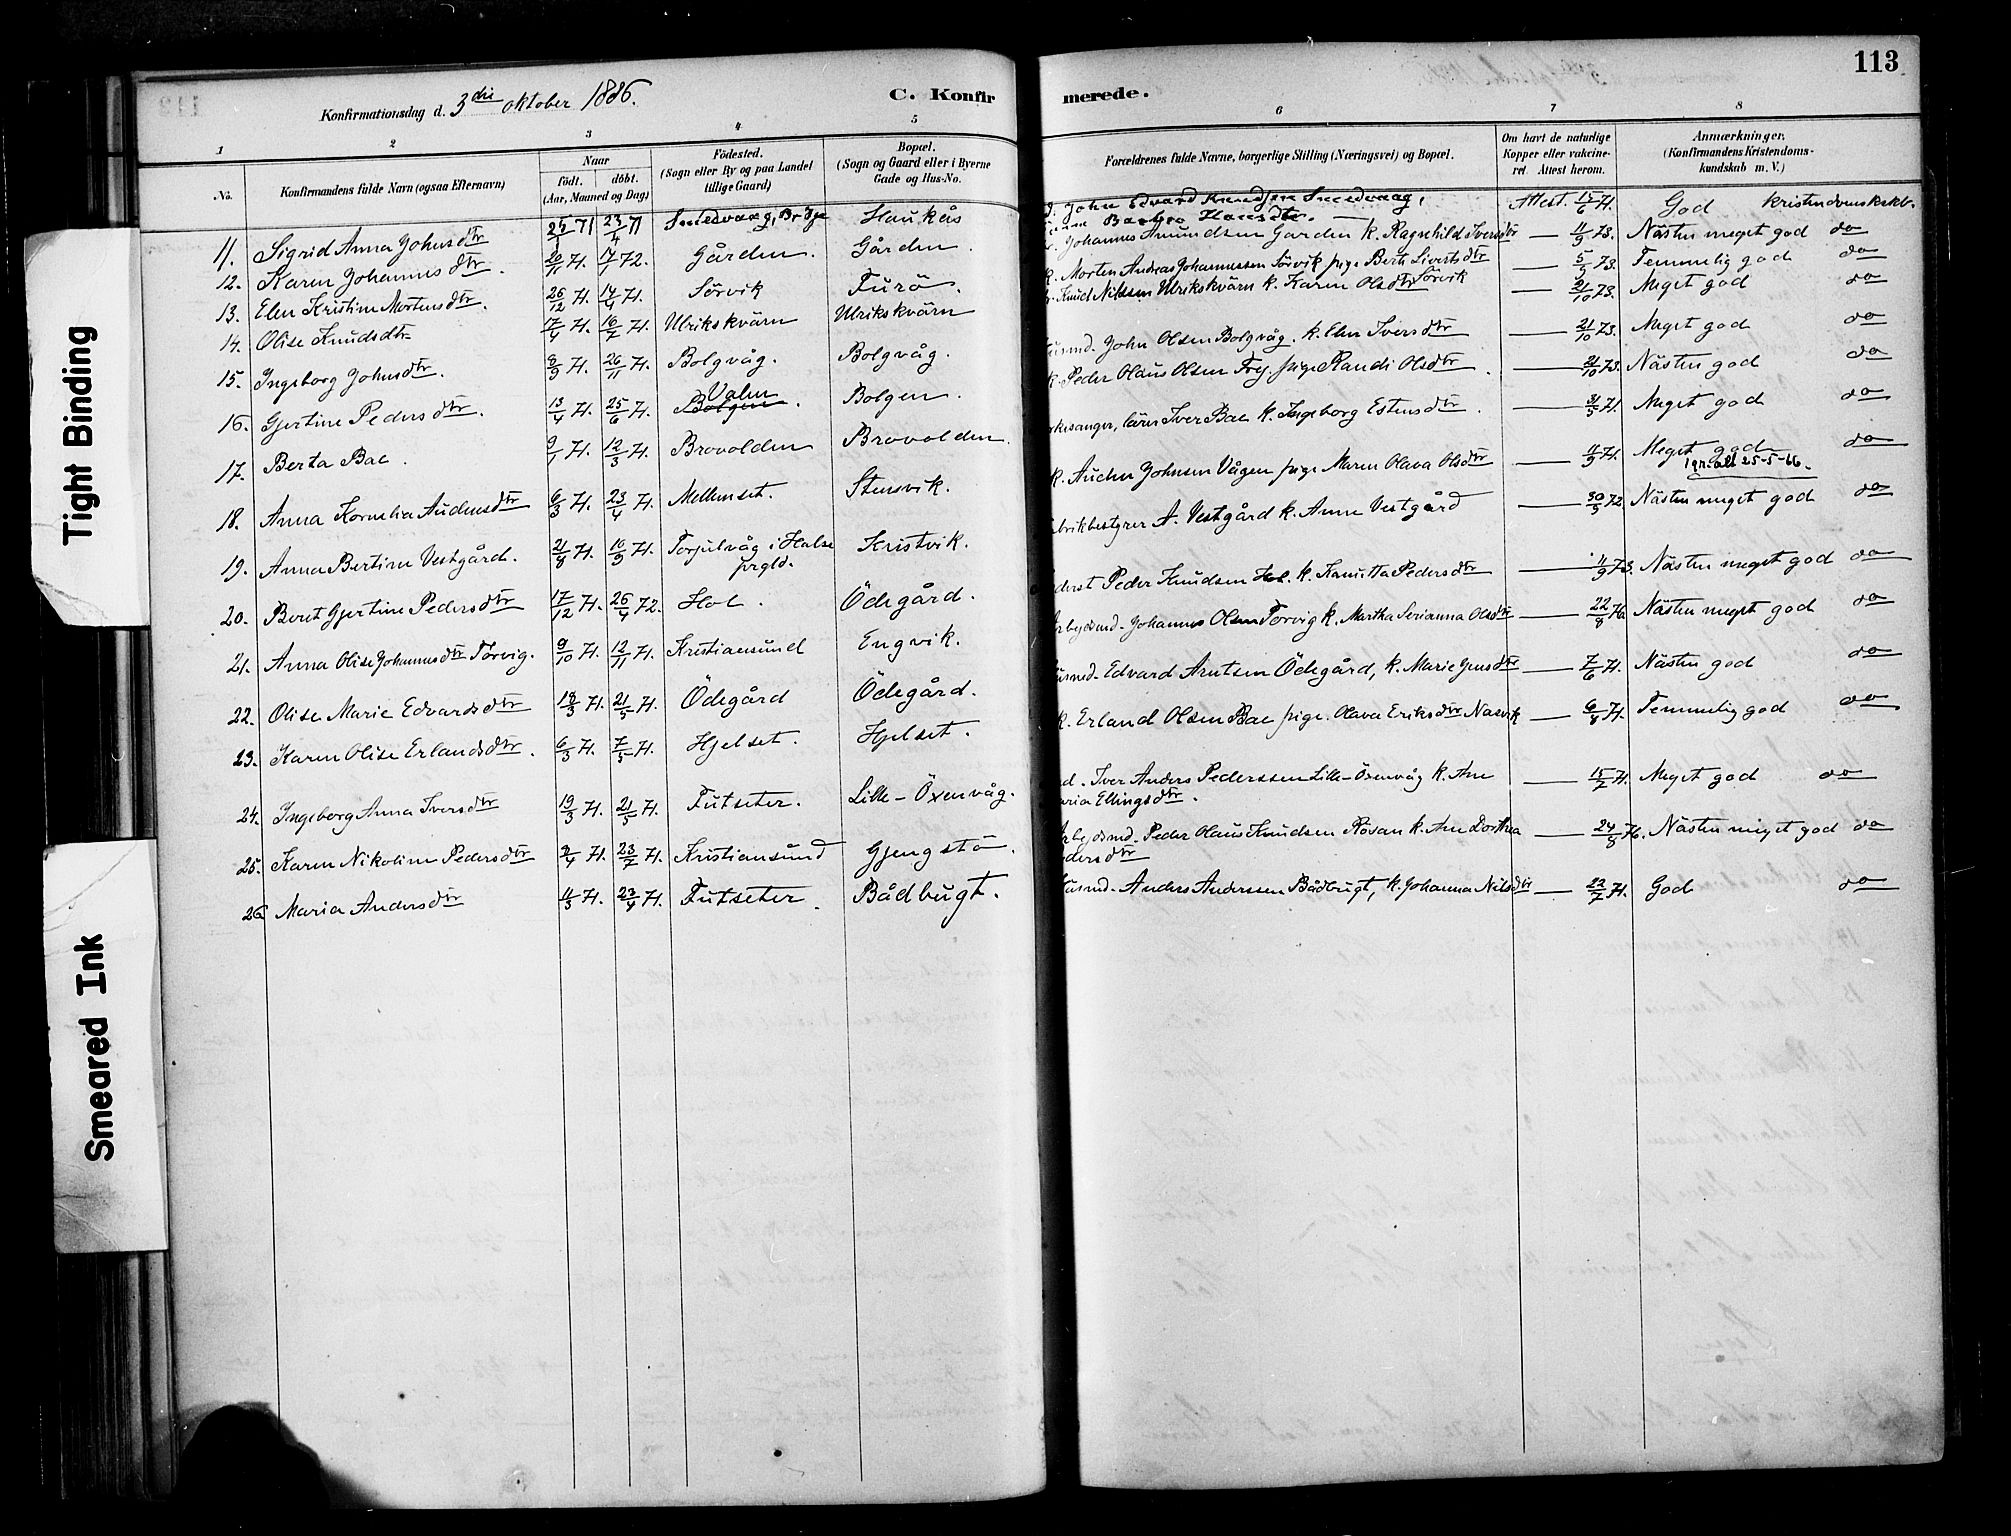 113
Konfirmationsdag d. 3die oktober 1886.
C. Konfirmerede.
1 2 3 4 5 6 7 8
No.
Konfirmandens fulde Navn (ogsaa Efternavn)
Naar
født. døbt.
(Aar, Maaned og Dag)
Födested.
(Sogn eller By og paa Landet
tillige Gaard)
Bopæl.
(Sogn og Gaard eller i Byerne
Gade og Hus-No.
Forældrenes fulde Navne, borgerlige Stilling (Næringsvei) og Bopæl.
Om havt de naturlige
Kopper eller vakcine-
ret. Attest herom.
Anmærkninger.
(Konfirmandens Kristendoms-
kundskab m. V.)
11. Sigrid Anna Johnsdtr 25/1 71 23/4 71 Smedvaag, Haukås John Edvard Knudsen Smedvaag, Attest. 15/6 71. God kristendomskskb.
Hansdtr.
12. Karen Johannesdtr. 20/11 71. 14/1 72. Gården. Gården. Johannes Amundsen Garden k. Ragnhild Iversdtr — 11/9 73. Nästen meget god do
13. Elen Kristine Mortensdtr. 26/12 71. 14/4 71. Sörvik Furö. k. Morten Andreas Johannessen Sörvik pige Berit Sivertsdtr Sörvik — 5/9 73. Temmelig god do
14. Olise Knudsdtr 17/4 71. 16/7 71. Ulrikskvärn Ulrikskvärn Knud Nilssen Ulrikskvärn k. Karen Olsdtr — 21/10 73. Meget god do
15. Ingeborg Johnsdtr. 8/9 71. 26/11 71. Bolgvåg. Bolgvåg. John Olsen Bolgvåg. k. Elen Iversdtr — 21/10 73. Meget god do
16. Gjertine Pedersdtr. 13/4 71. 25/6 71. Bolgen. Valen Bolgen. k. Peder Olaus Olsen Frej. pige Randi Olsdtr. — 21/10 73. Nästen god do
17. Berta Bae. 9/1 71. 12/3 71. Brovolden Brovolden. rkesanger, lärer Iver Bae k. Ingeborg Estensdtr. — 31/5 71. Meget god do
18. Anna Kornelia Audensdtr 6/3 71. 23/4 71. Mellemset. Stensvik. k. Auden Johnsen Vågen pige Maren Olava Olsdtr — 11/9 71. Meget god do
25-5-66.
19. Anna Bertine Vestgård. 21/8 71. 10/9 71. Torjulvåg i Halse prgld. Kristvik. brikbestyrer A. Vestgård k. Anne Vestgård — 30/5 72 Nästen meget god do
20. Beret Gjertine Pedersdtr 17/12 71. 26/4 72. Hol. Ödegård. derst Peder Knudsen Hol. k. Kanutta Pedersdtr — 11/9 73. Nästen meget god do
21. Anna Olise Johannesdtr Torvig. 9/10 71. 12/11 71. Kristiansund Engvik. Arbejdsmd. Johannes Olsen Torvig k. Martha Serianna Olsdtr — 22/8 76 Nästen meget god do
22. Olise Marie Edvardsdtr 18/3 71. 21/5 71. Ödegård Ödegård. Husmd. Edvard Arntsen Ödegård, k. Marie Jensdtr — 7/6 71. Nästen god do
23. Karen Olise Erlandsdtr. 6/3 71. 7/5 71. Hjelset. Hjelset. k. Erland Olsen Bae pige. Olava Eriksdtr Nasvik — 6/4 71. Temmelig god do
24. Ingeborg Anna Iversdtr 19/3 71. 21/5 71. Futseter. Lille-Öxenvåg. Iver Anders Pederssen Lille-Öxenvåg k. Ane
aria Ellingsdtr. — 15/7 71. Meget god do
25. Karen Nikoline Pedersdtr 2/4 71. 23/7 71. Kristiansund Gjengstö. Arbejdsmd. Peder Olaus Knudsen Rösan k. Ane Dorthea
dersdtr — 24/8 76. Nästen meget god do
26 Maria Andersdtr 11/3 71. 23/4 71. Futseter. Bådbugt. Husmd. Anders Anderssen Bådbugt, k. Johanna Nilsdtr — 22/7 71. God do
Tight Binding
Smeared Ink